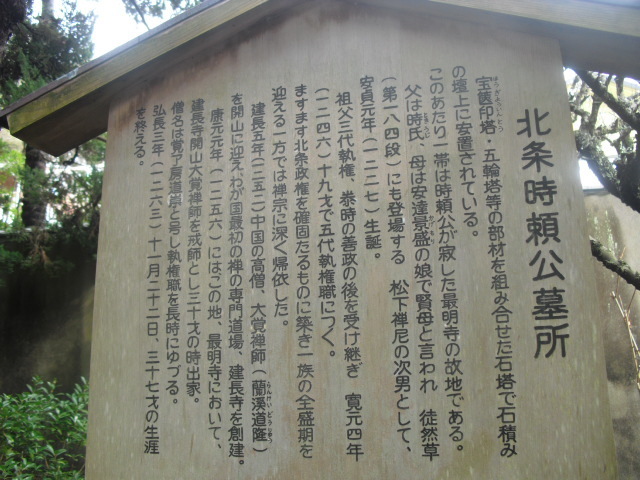 北条時頼公墓所
宝医印塔・五輪塔等の部材を組み合せた石塔で石積み
の壇上に安置されている。
このあたり一帯は時頼公が寂した最明寺の故地である。
父は時氏、母は安達景盛の娘で賢母と言われ 徒然草
(第一八四段)にも登場する 松下禅尼の次男として、
安貞元年(一二二七)生誕。
祖父三代執権、泰時の善政の後を受け継ぎ 寛元四年
(一二四六)十九才で五代執権職につく。
ますます北条政権を確固たるものに築き一族の全盛期を
迎える一方では禅宗に深く帰依した。
建長五年(一二五二)中国の高僧、大覚禅師(蘭溪道隆)
を開山に迎えわが国最初の禅の専門道場、建長寺を創建。
康元元年(一二五六)にはこの地、最明寺において、
建長寺開山大覚禅師を戒師とし三十才の時出家。
僧名は覚了房道崇と号し執権職を長時にゆづる。
弘長三年(一二六三)十一月二十二日、三十七才の生涯
を終える。